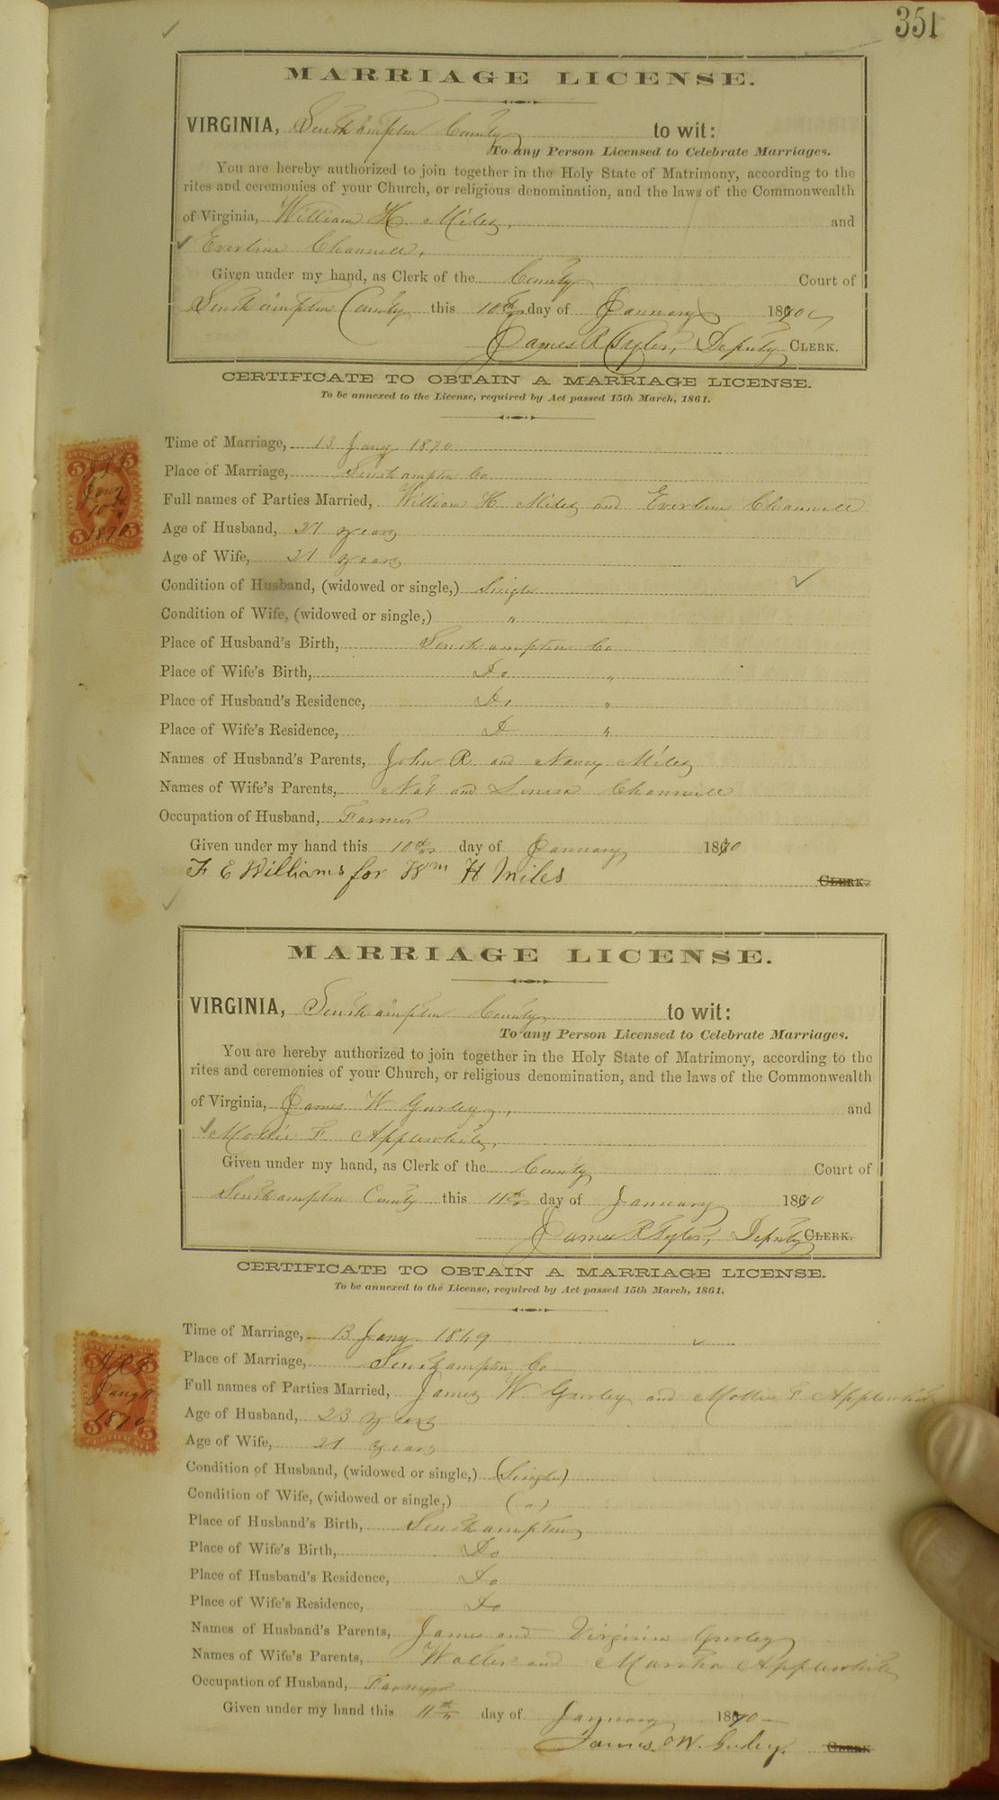 351
MARRIAGE LICENSE.
VIRGINIA, Southampton County to wit:
To any Person Licensed to Celebrate Marriages.
You are hereby authorized to join together in the Holy State of Matrimony, according to the
rites and ceremonies of your Church, or religious denomination, and the laws of the Commonwealth
of Virginia, William H. Miles, and
Everline Channell,
Given under my hand, as Clerk of the County Court of
Southampton County this 10th day of January 1870
James R Tyler, Deputy CLERK.
CERTIFICATE TO OBTAIN A MARRIAGE LICENSE.
To be annexed to the License, required by Act passed 15th March, 1861.
Time of Marriage, 13 Jany 1870
Place of Marriage, Southampton Co
Full names of Parties Married, William H Miles and Everline Channell
Age of Husband, 27 years
Age of Wife, 21 years
Condition of Husband, (widowed or single,) Single
Condition of Wife, (widowed or single,) "
Place of Husband's Birth, Southampton Co
Place of Wife's Birth, Do "
Place of Husband's Residence, Do "
Place of Wife's Residence, D "
Names of Husband's Parents, John R. and Nancy Miles
Names of Wife's Parents, Nat and Louisa Channell
Occupation of Husband, Farmer
Given under my hand this 10th day of January 1870
F E Williams for Wm H Miles CLERK.
5 5
Jany
10th
1870
MARRIAGE LICENSE.
VIRGINIA, Southampton County to wit:
To any Person Licensed to Celebrate Marriages.
You are hereby authorized to join together in the Holy State of Matrimony, according to the
rites and ceremonies of your Church, or religious denomination, and the laws of the Commonwealth
of Virginia, James W Gurley, and
Mollie F Applewhite,
Given under my hand, as Clerk of the County Court of
Southampton County this 11th day of January 1870
James R Tyler, Deputy CLERK.
CERTIFICATE TO OBTAIN A MARRIAGE LICENSE.
To be annexed to the License, required by Act passed 15th March, 1861.
Time of Marriage, 13 Jany 1869
Place of Marriage, Southampton Co
Full names of Parties Married, James W Gurley and Mollie F Applewhite
Age of Husband, 23 years
Age of Wife, 21 years
Condition of Husband, (widowed or single,) (Single)
Condition of Wife, (widowed or single,) (")
Place of Husband's Birth, Southampton
Place of Wife's Birth, Do
Place of Husband's Residence, Do
Place of Wife's Residence, Do
Names of Husband's Parents, James and Virginia Gurley
Names of Wife's Parents, Walter and Martha Applewhite
Occupation of Husband, Farmer
Given under my hand this 11th day of January 1870
James W. Gurley. CLERK
Jany 11
1870